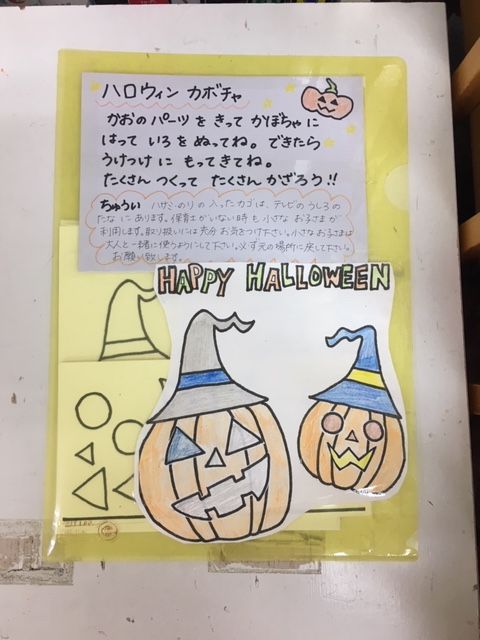 ハロウィン カボチャ
かおの パーツ を きって かぼちゃ に
はって いろ を ぬってね。できたら
うけつけ に もってきてね。
たくさん つくって たくさん かざろう!!
ちゅうい ハサミ・のり の 入った カゴは、テレビの うしろの
たな に あります。保育士がいない時も 小さな お子さまが
利用します。取り扱いには 充分 お気をつけ下さい。小さなお子さまは
大人と一緒に使うようにして下さい。必ず元の場所に戻して下さい。
お願い致します。
HAPPY HALLOWEEN